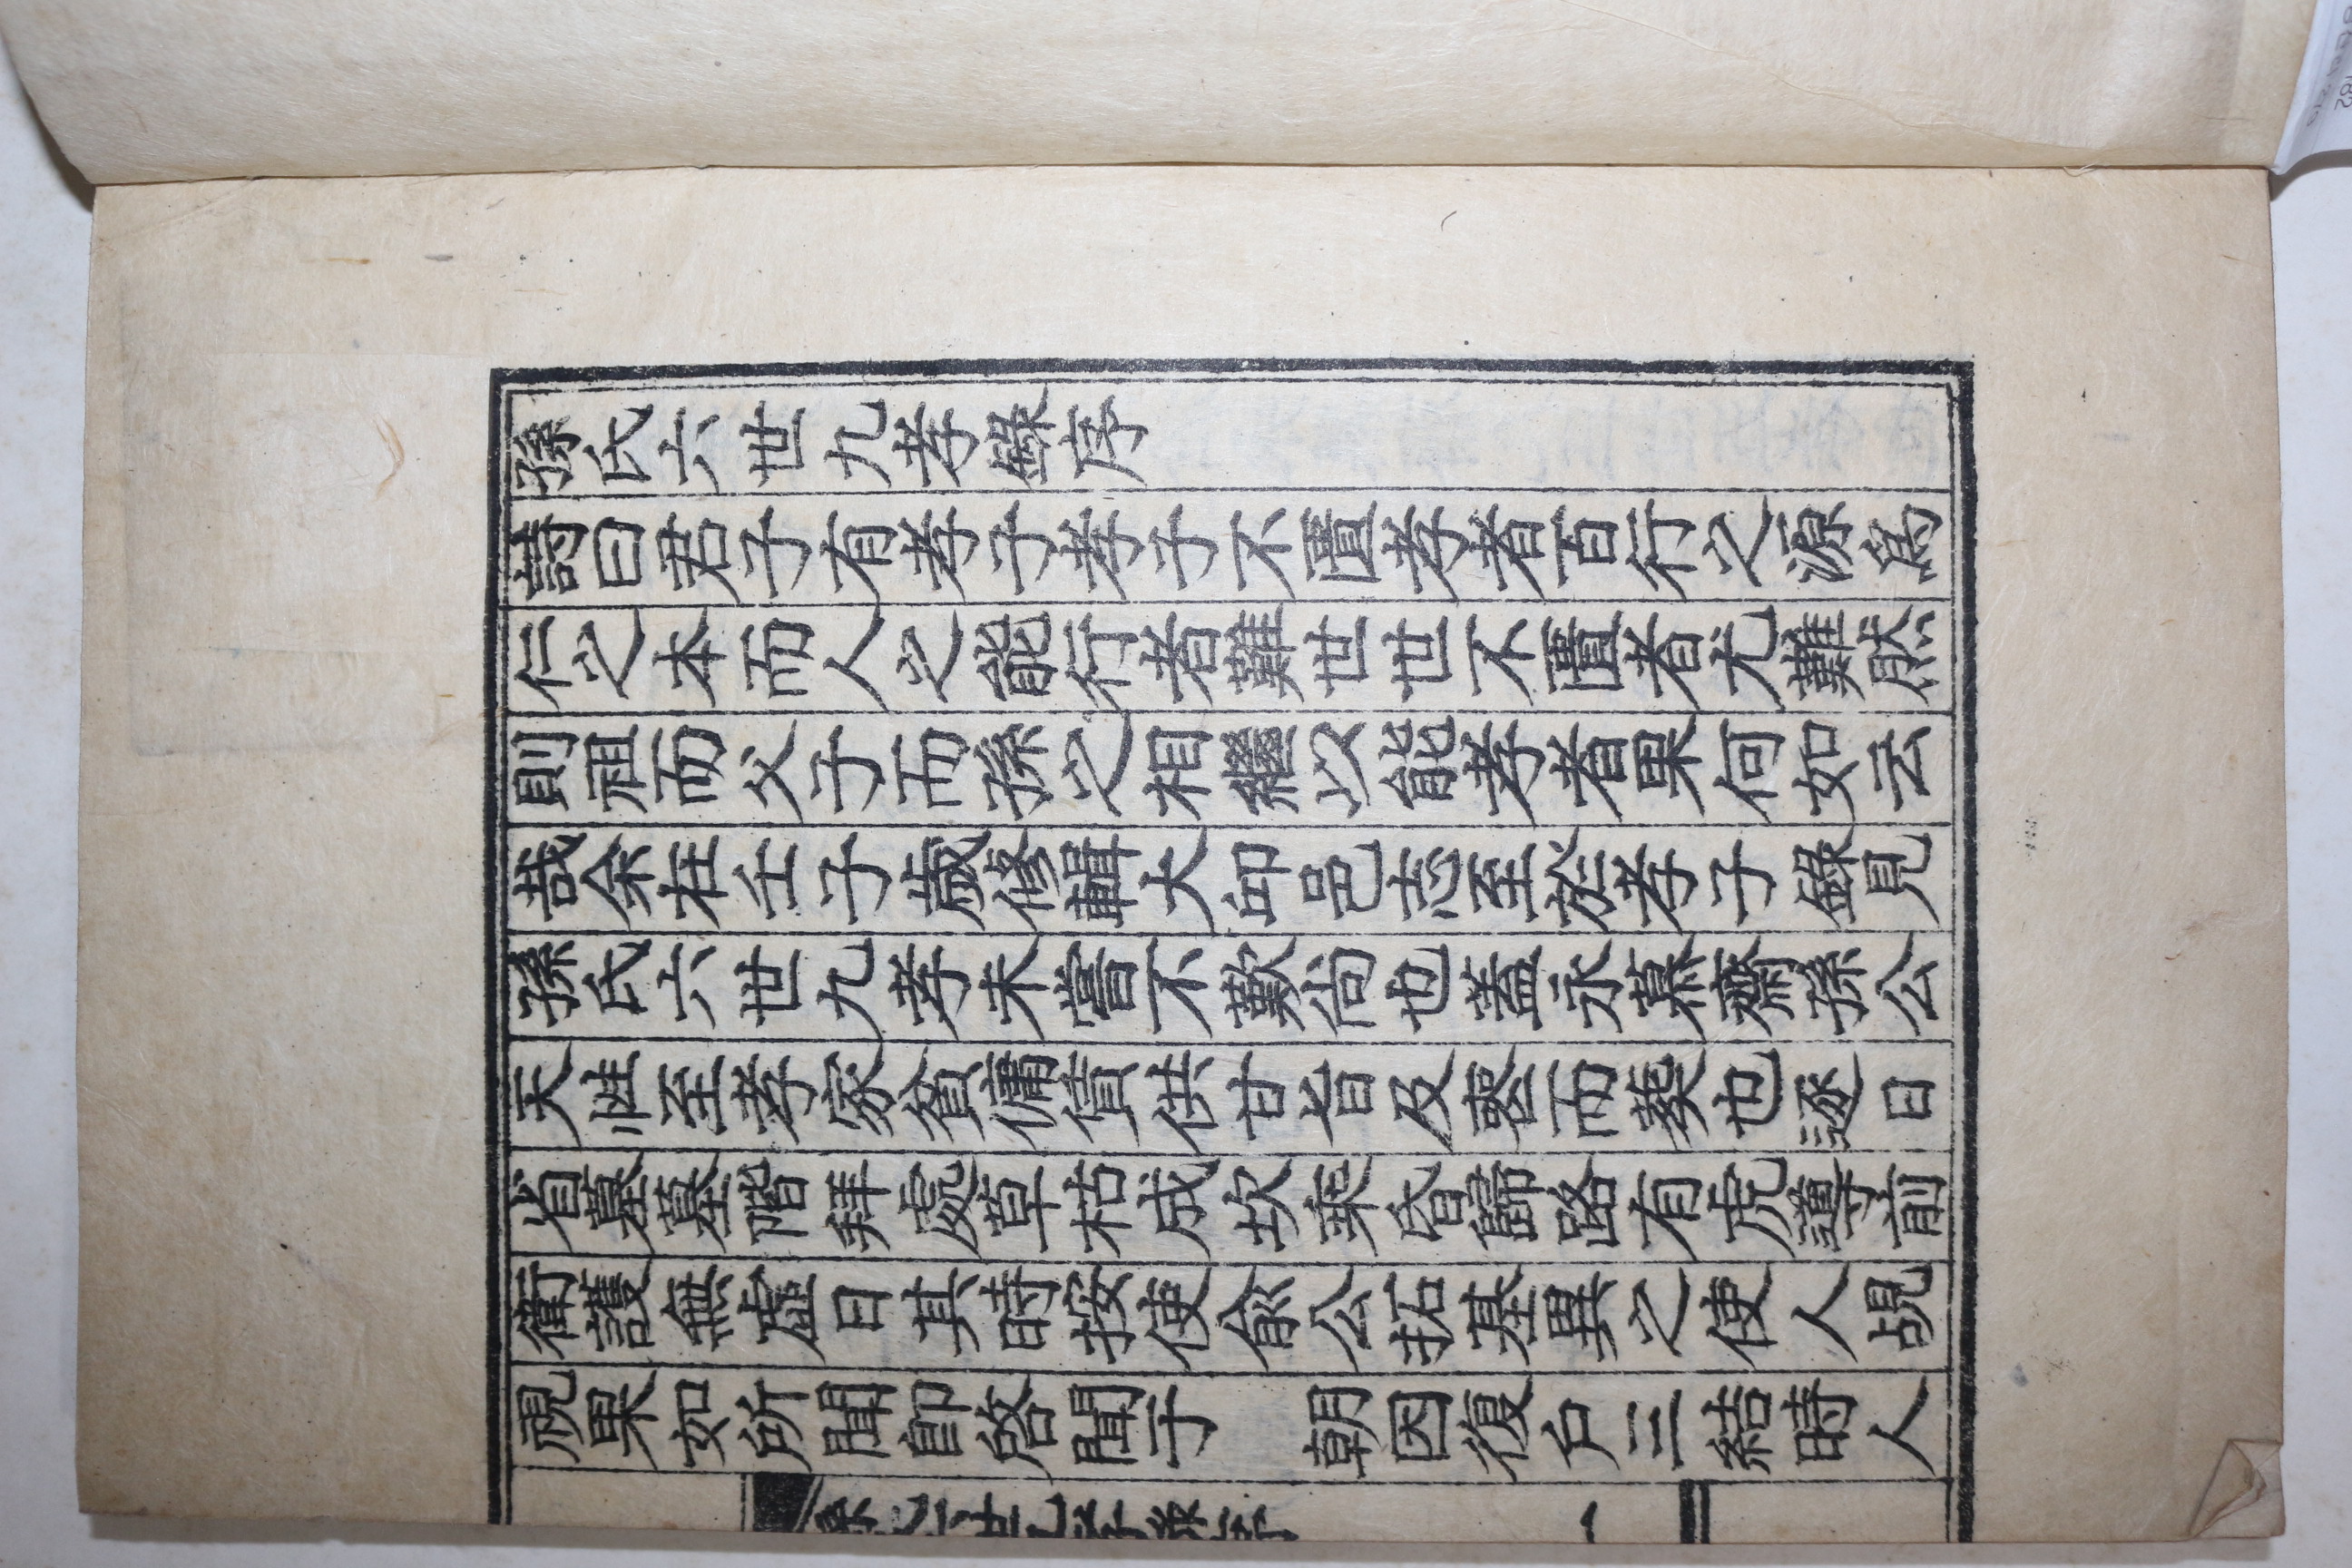 孫氏六世九孝錄序
詩曰君子有孝子孝子不匱孝者百行之源爲
仁之本而人之能行者難世世不匱者尤難然
則祖而父子而孫之相繼以能孝者果何如云
哉余在壬子歲修輯大邱邑志至於孝子錄見
孫氏六世九孝未嘗不歎尚也蓋永慕齋孫公
天性至孝家貧傭賃供甘旨及喪而葬也逐日
省墓墓階拜處草枯成坎乘昏歸路有虎導前
衛護無虛日其時按使兪公拓基異之使人覘
視果如所聞卽啓聞于　朝因復戶三結時人
一